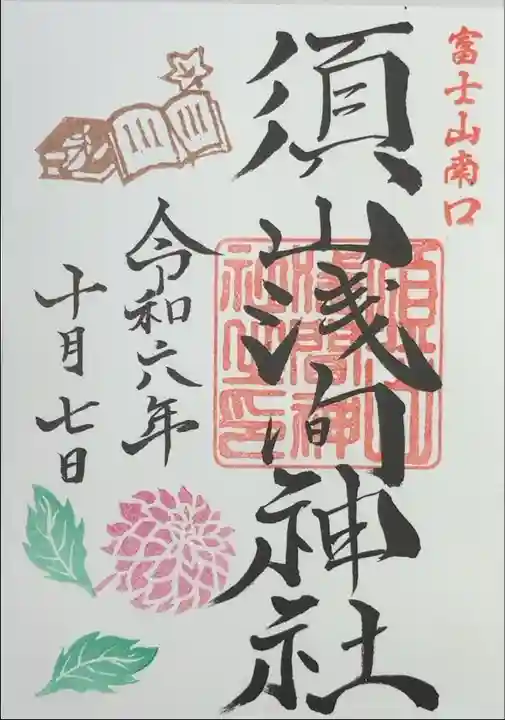 富士山南口
須山浅间神社
須山
浅間神
社之印
令和六年
十月七日